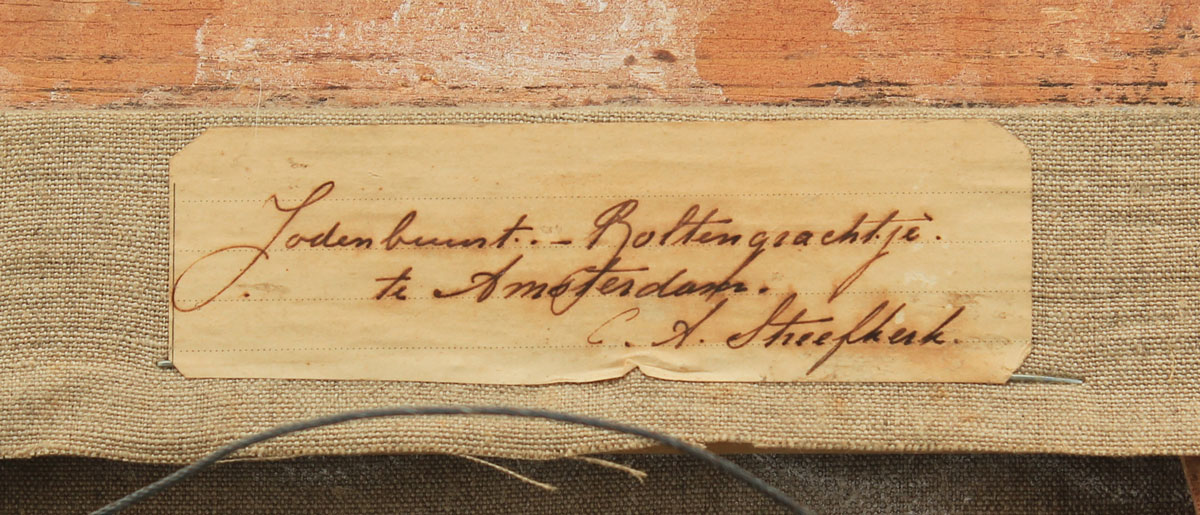 Jodenbuurt. - Roltengrachtje.
te Amsterdam.
C. A. Streefkerk.